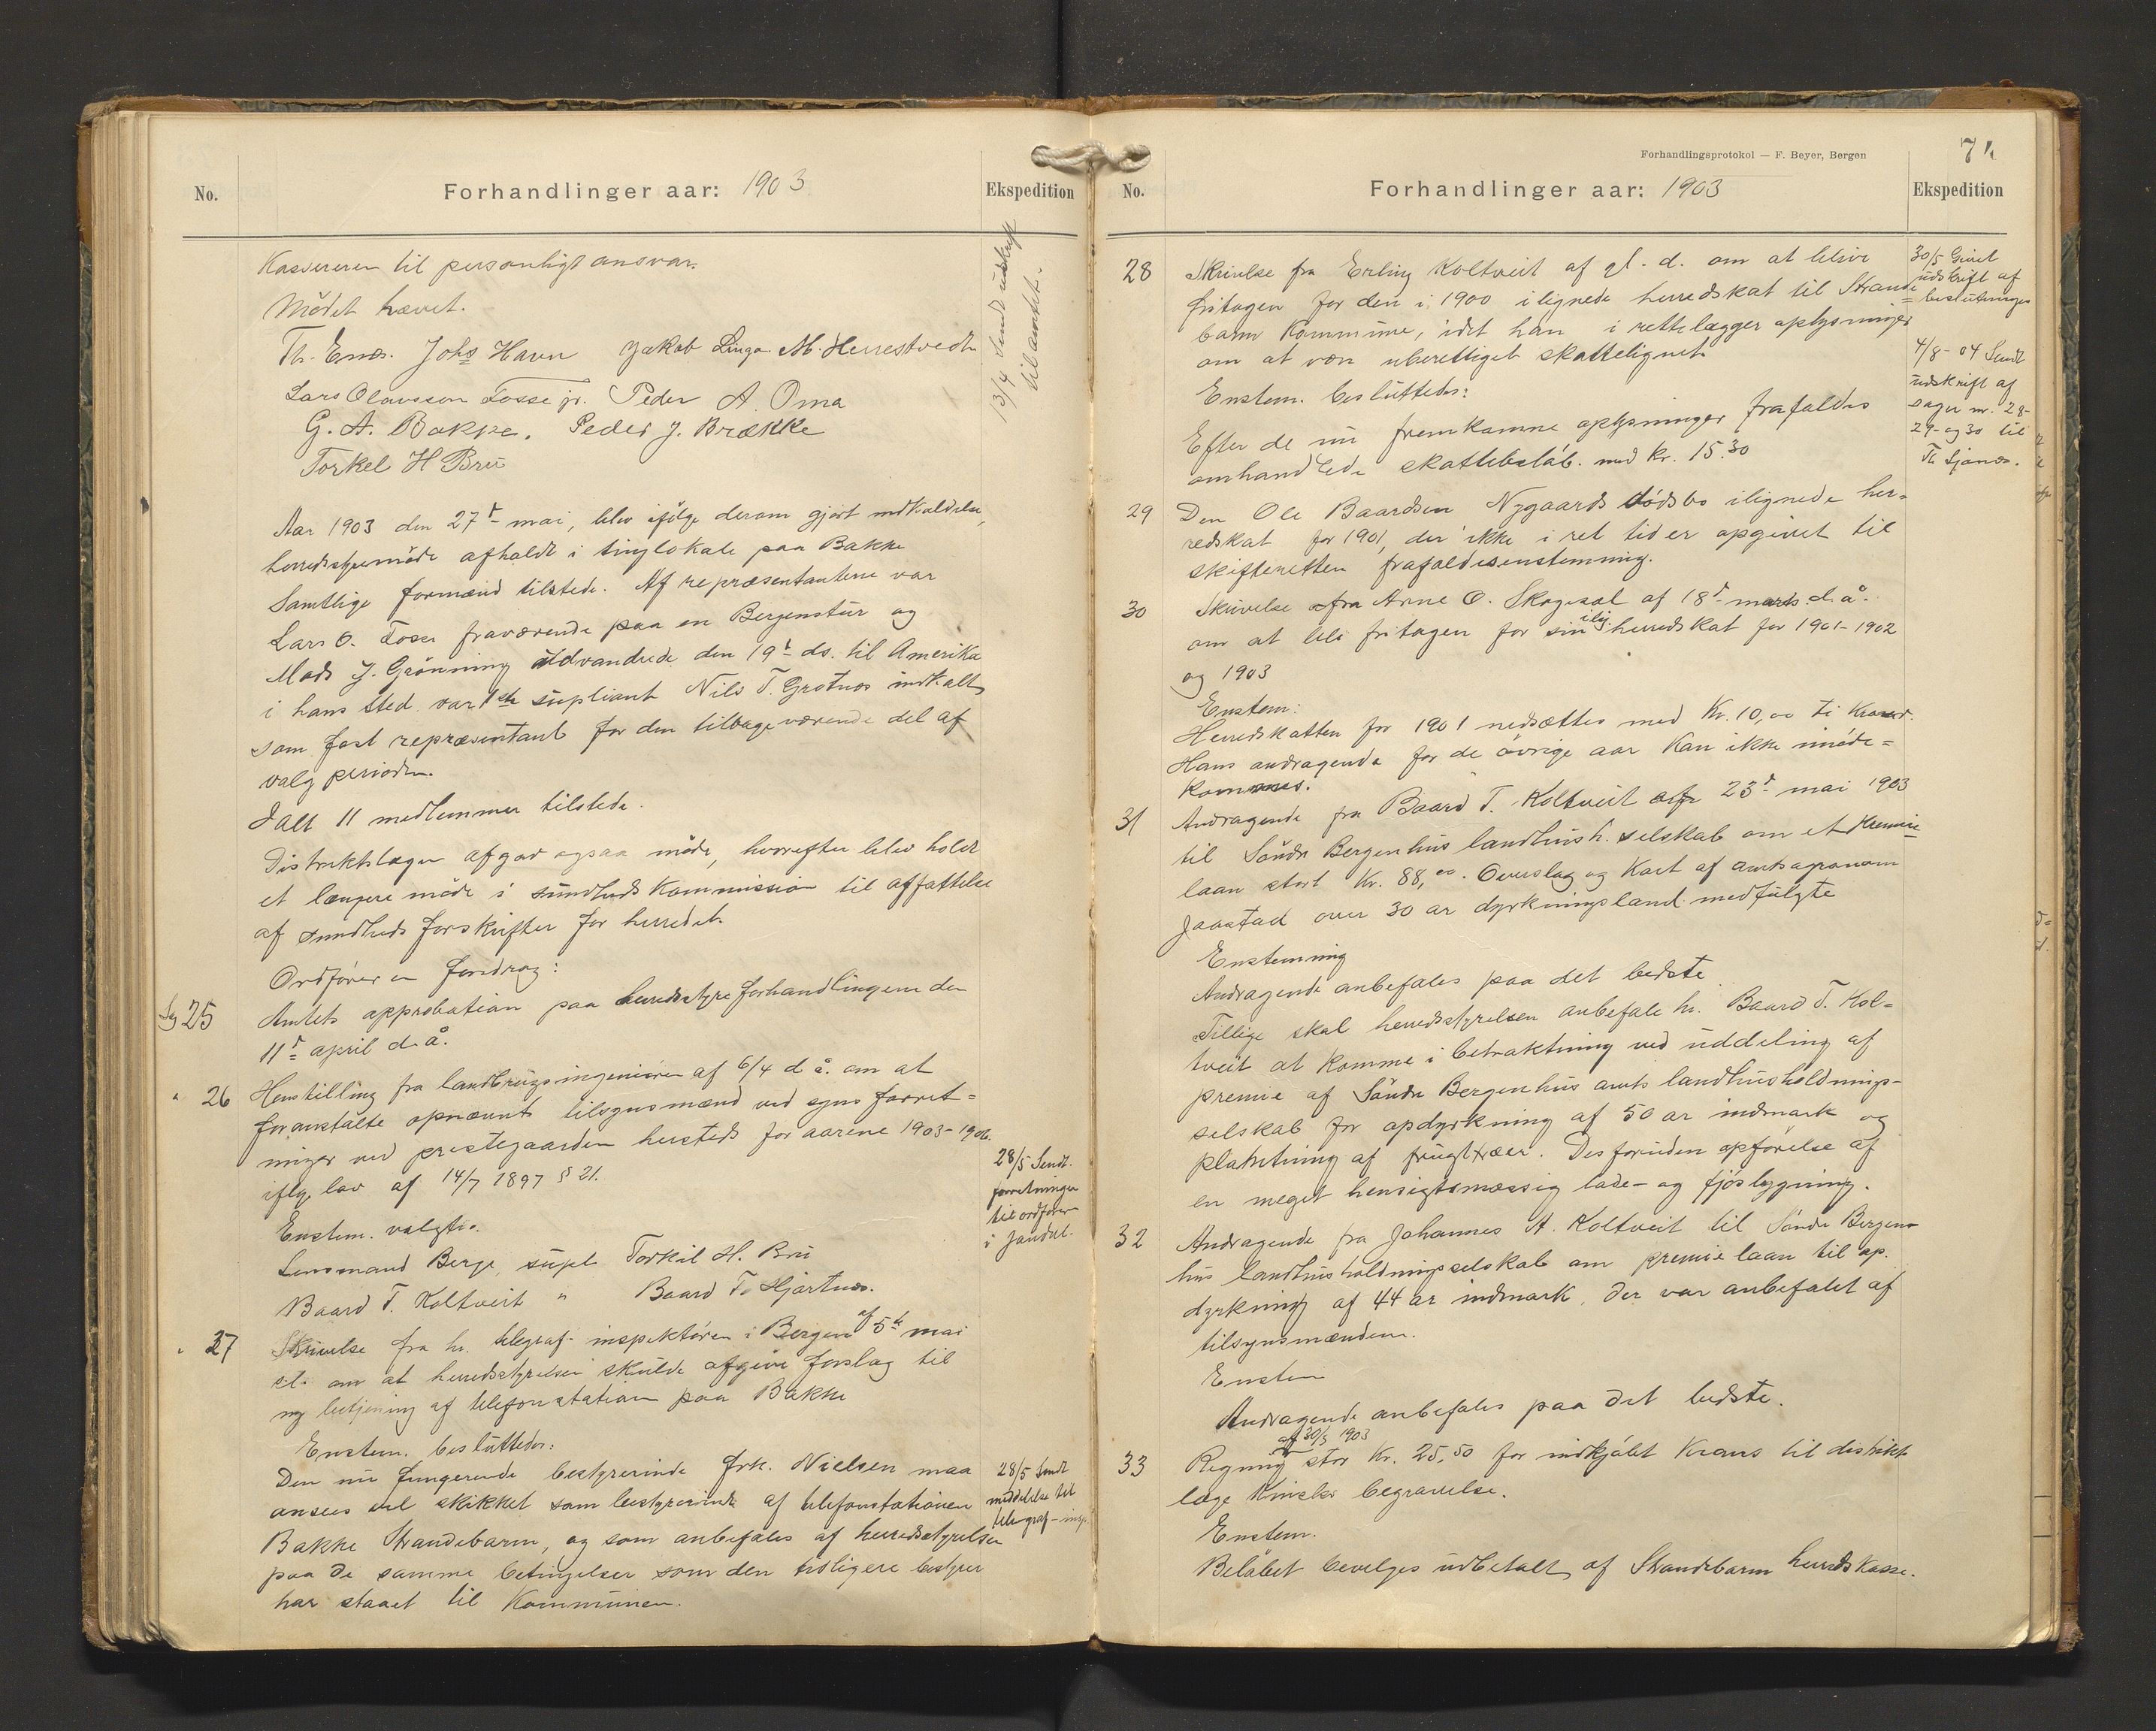 No.
Forhandlinger aar: 1903
Ekspedition
Kassereren til personligt ansvar.
Mödet hævet.
Th. Enæs. Johs Havn Jakob Linga M. Herrestvedt
Lars Olavsson Fosse jr. Peder A. Oma
G. A. Bakke. Peder J. Brække
Torkel H Bru
13/4 Sendt udskrift
til amtet.
Aar 1903 den 27de mai, blev ifölge derom gjort indkaldelse,
herredsstyremöde afholdt i tinglokale paa Bakke
Samtlige formænd tilstede. Af repræsentanterne var
Lars O. Fosse fraværende paa en Bergenstur og
Mads J. Grönning udvandrede den 19de ds. til Amerika
i hans sted var 1ste supliant Nils T. Grotnæs indkaldt
som fast repræsentant for den tilbageværende del af
valg perioden.
Ialt 11 medlemmer tilstede.
Distriktslægen afgav ogsaa möde, hvorefter blev holdt
et længere möde i sundheds kommission til affattelse
af sundheds forskrifter for herredet.
Ordföreren foredrog:
Sag 25
Amtets approbation paa herredsstyreforhandlingerne den
11te april d. å.
" 26
Henstilling fra landbrugsingeniören af 6/4 d å. om at
foranstalte opnævnt tilsynsmænd ved syns forret=
ninger ved prestegaarden hersteds for aarene 1903-1906
iflg. lov af 14/7 1897 § 21.
28/5 Sendt.
forretningen
til ordförer
i Jondal.
Enstem. valgtes.
Lensmand Berge, supl Torkil H. Bru
Baard T. Koltveit " Baard T. Hjartnæs.
" 27
Skrivelse fra hr. telegraf-inspektören i Bergen af 5te mai
d. om at herredsstyrelsen skulde afgive forslag til
ny betjening af telefonstation paa Bakke
Enstem. besluttedes:
Den nu fungerende bestyrerinde frk. Nielsen maa
ansees vel skikket som bestyrerinde af telefonstationen
Bakke Strandebarm, og som anbefales af herredsstyrelsen
paa de samme betingelser som den tidligere bestyrer
har staaet til Kommunen.
28/5 Sendt
meddelelse til
telegraf-insp.
Forhandlingsprotokol — F. Beyer, Bergen
74
No.
Forhandlinger aar: 1903
Ekspedition
28
Skrivelse fra Erling Koltveit af gl. d. om at blive
fritagen for den i 1900 ilignede herredskat til Strande=
barm Kommune, idet han i rettelægger oplysninger
om at være uberettiget skattelignet.
Enstem. besluttedes:
Efter de nu fremkomne oplysninger frafaldes
omhandlede skattebelöb. med kr. 15.30
30/5 Givet
udskrift af
beslutningen
4/8-04 Sendt
udskrift af
sager nr. 28-
29-og 30 til
Th Sjonæs.
29
Den Ole Baardsen Nygaards dödsbo ilignede her=
redskat for 1901, der ikke i ret tid er opgivet til
skifteretten frafaldes enstemmig.
30
Skrivelse fra Arne O. Skogesal af 18de marts d. å.
om at bli fritagen for sin ilig. herredskat for 1901-1902
og 1903
Enstem:
Herredskatten for 1901 nedsættes med Kr. 10,00 ti Kroner.
Hans andragende for de övrige aar kan ikke imöde=
kommes.
31
Andragende fra Baard T. Koltveit af 23de mai 1903
til Söndre Bergenhus landhush. selskab om et Premie
laan stort Kr. 88,00. Overslag og Kart af amtsagronom
Jaastad over 30 ar dyrkningsland medfulgte
Enstemmig
Andragende anbefales paa det bedste
Tillige skal herredsstyrelsen anbefale hr. Baard T. Kol=
tveit at komme i betraktning ved uddeling af
premie af Söndre Bergenhus amts landhusholdnings-
selskab for opdyrkning af 50 ar indmark og
plantning af frugttræer. Desforuden opförelse af
en meget hensigtsmæssig lade- og fjösbygning.
32
Andragende fra Johannes A. Koltveit til Söndre Bergen=
hus landhusholdningsselskab om premielaan til op.
dyrkning af 44 ar indmark. Der var anbefalet af
tilsynsmændene.
Enstem
Andragende anbefales paa det bedste.
33
Regning af 30/3 1903 stor Kr. 25,50 for indkjöbt Krans til distrikts
læge begravelse.
Enstem.
Belöbet bevilges udbetalt af Strandebarm herreds kasse.